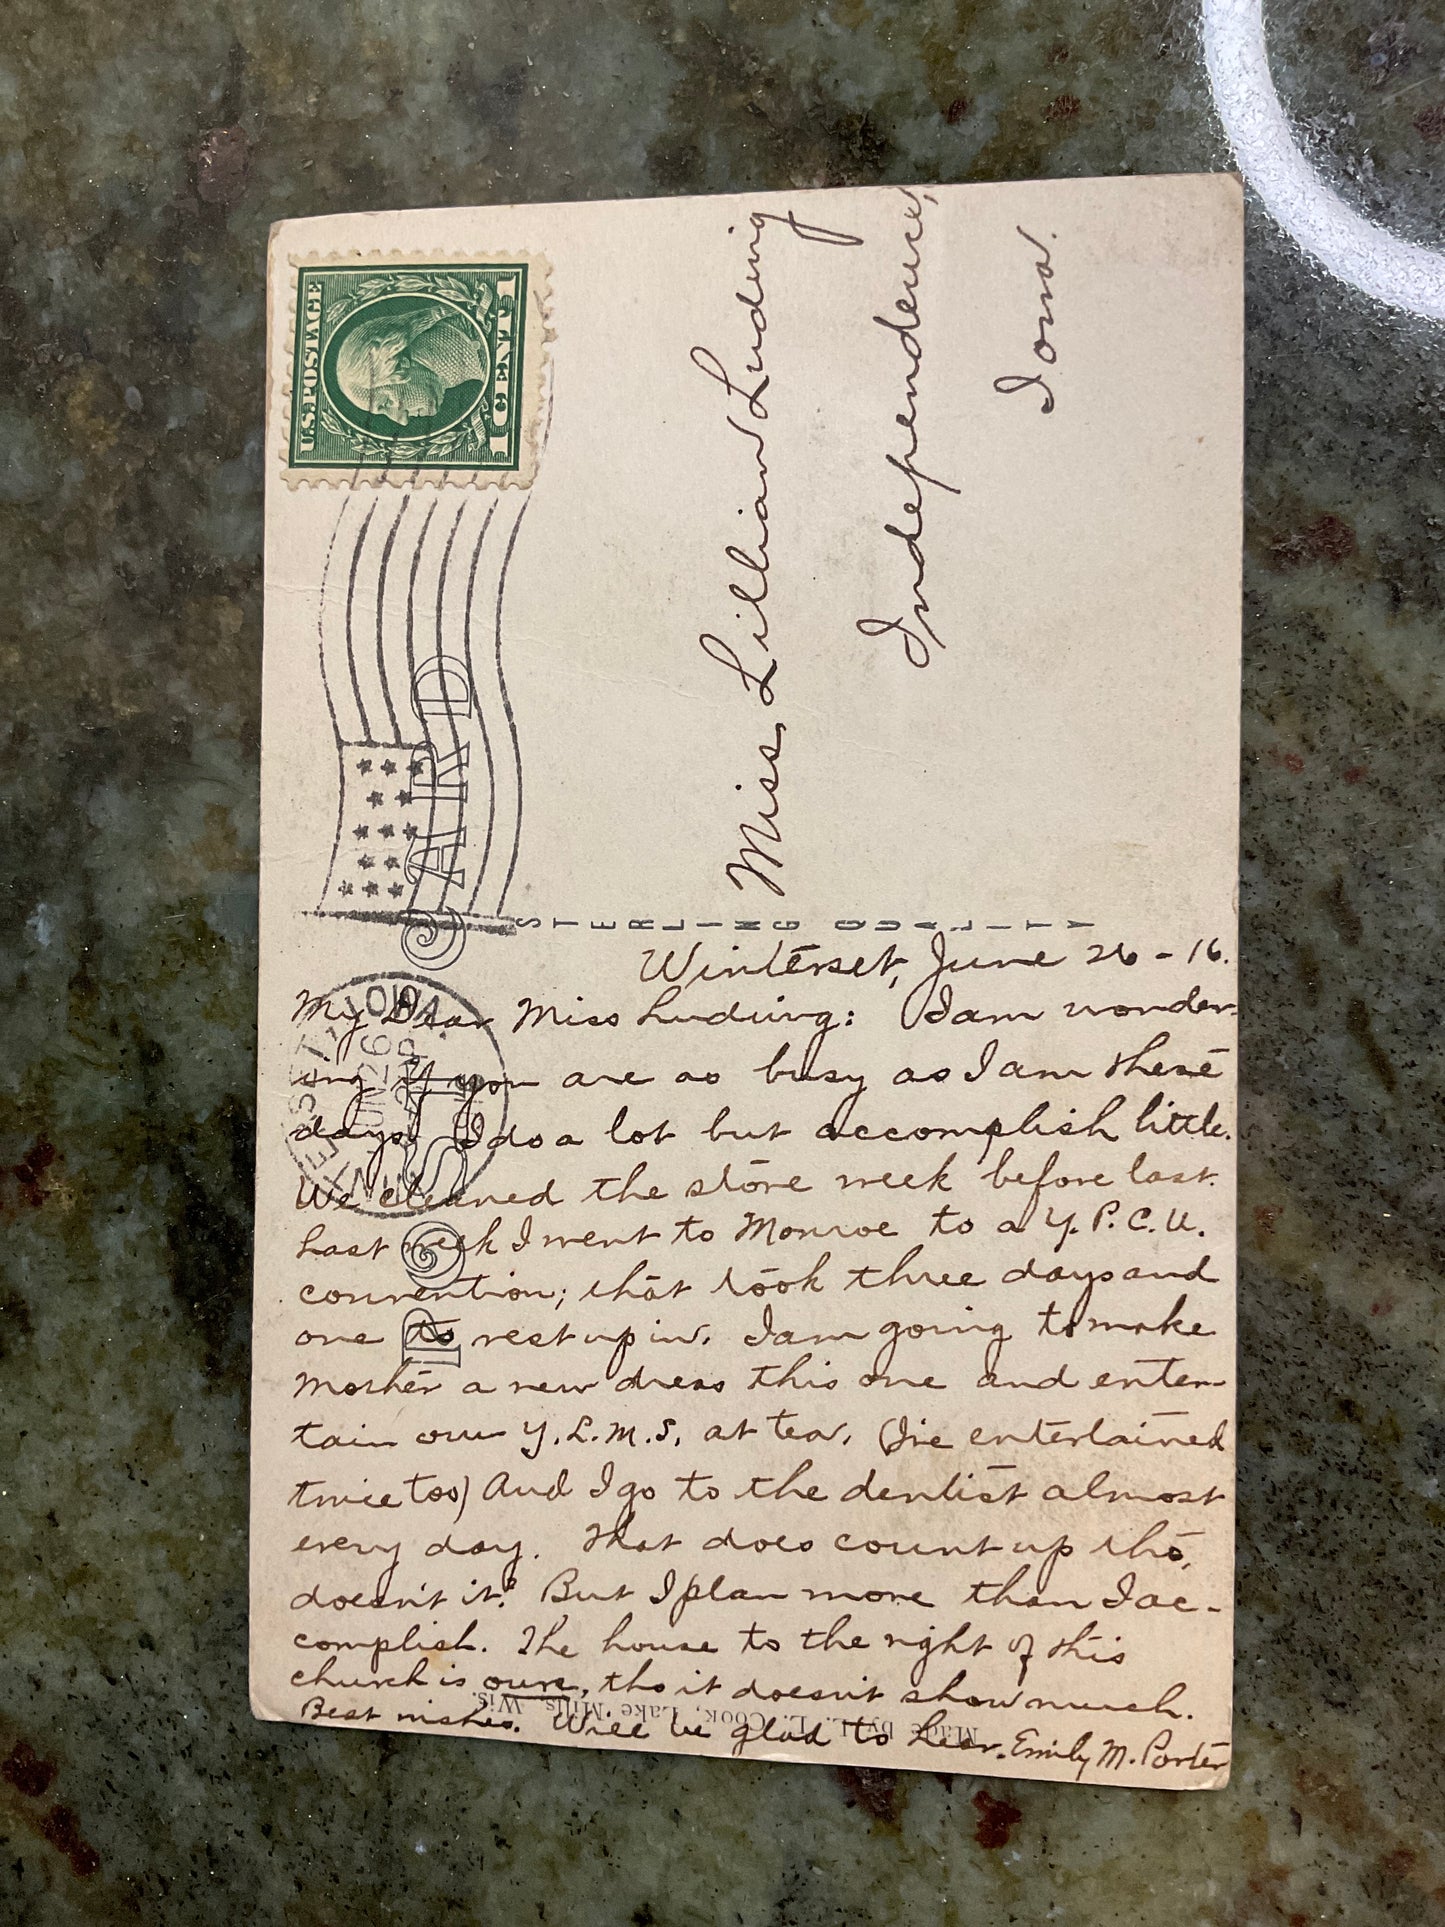 U.S. POSTAGE
1 CENT 1
POST CARD
WINTERSET, IOWA.
JUN 26
STERLING QUALITY
Miss Lillian Luduing
Independence,
Iowa.
Winterset, June 26 - 16.
My Dear Miss Luduing: I am wonder-
ing if you are as busy as I am these
days. I do a lot but accomplish little.
We cleaned the store week before last.
Last week I went to Monroe to a Y.P.C.U.
convention; that took three days and
one to rest up in. I am going to make
Mother a new dress this one and enter-
tain our Y.L.M.S. at tea. (I've entertained
twice too) And I go to the dentist almost
every day. That does count up tho,
doesn't it? But I plan more than I ac-
complish. The house to the right of this
church is ours, tho it doesn't show much.
Best wishes. Will be glad to hear. Emily M. Porter
Made by E. L. Cook, Lake Mills, Wis.